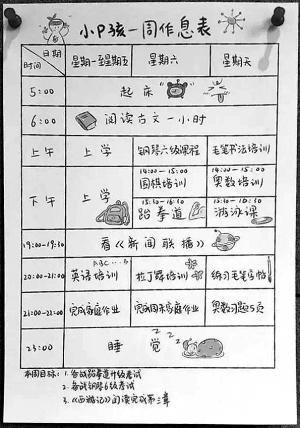 小P孩一周作息表
日期
时间
星期一至星期五
星期六
星期天
5:00
起床
6:00
阅读古文一小时
上午
上学
钢琴六级课程
毛笔书法培训
下午
上学
14:00-15:00
围棋培训
14:00-15:00
奥数培训
15:10-16:30
跆拳道
15:10-16:30
游泳课
19:00-19:30
看《新闻联播》
20:00-21:00
ABC...
英语培训
拉丁舞培训
练习毛笔字帖
21:00-22:00
完成家庭作业
完成周末家庭作业
奥数习题5页
23:00
睡觉
zzz
本周目标:1.备战跆拳道升级考试
2.备战钢琴6级考试
3.《西游记》阅读完成第三章